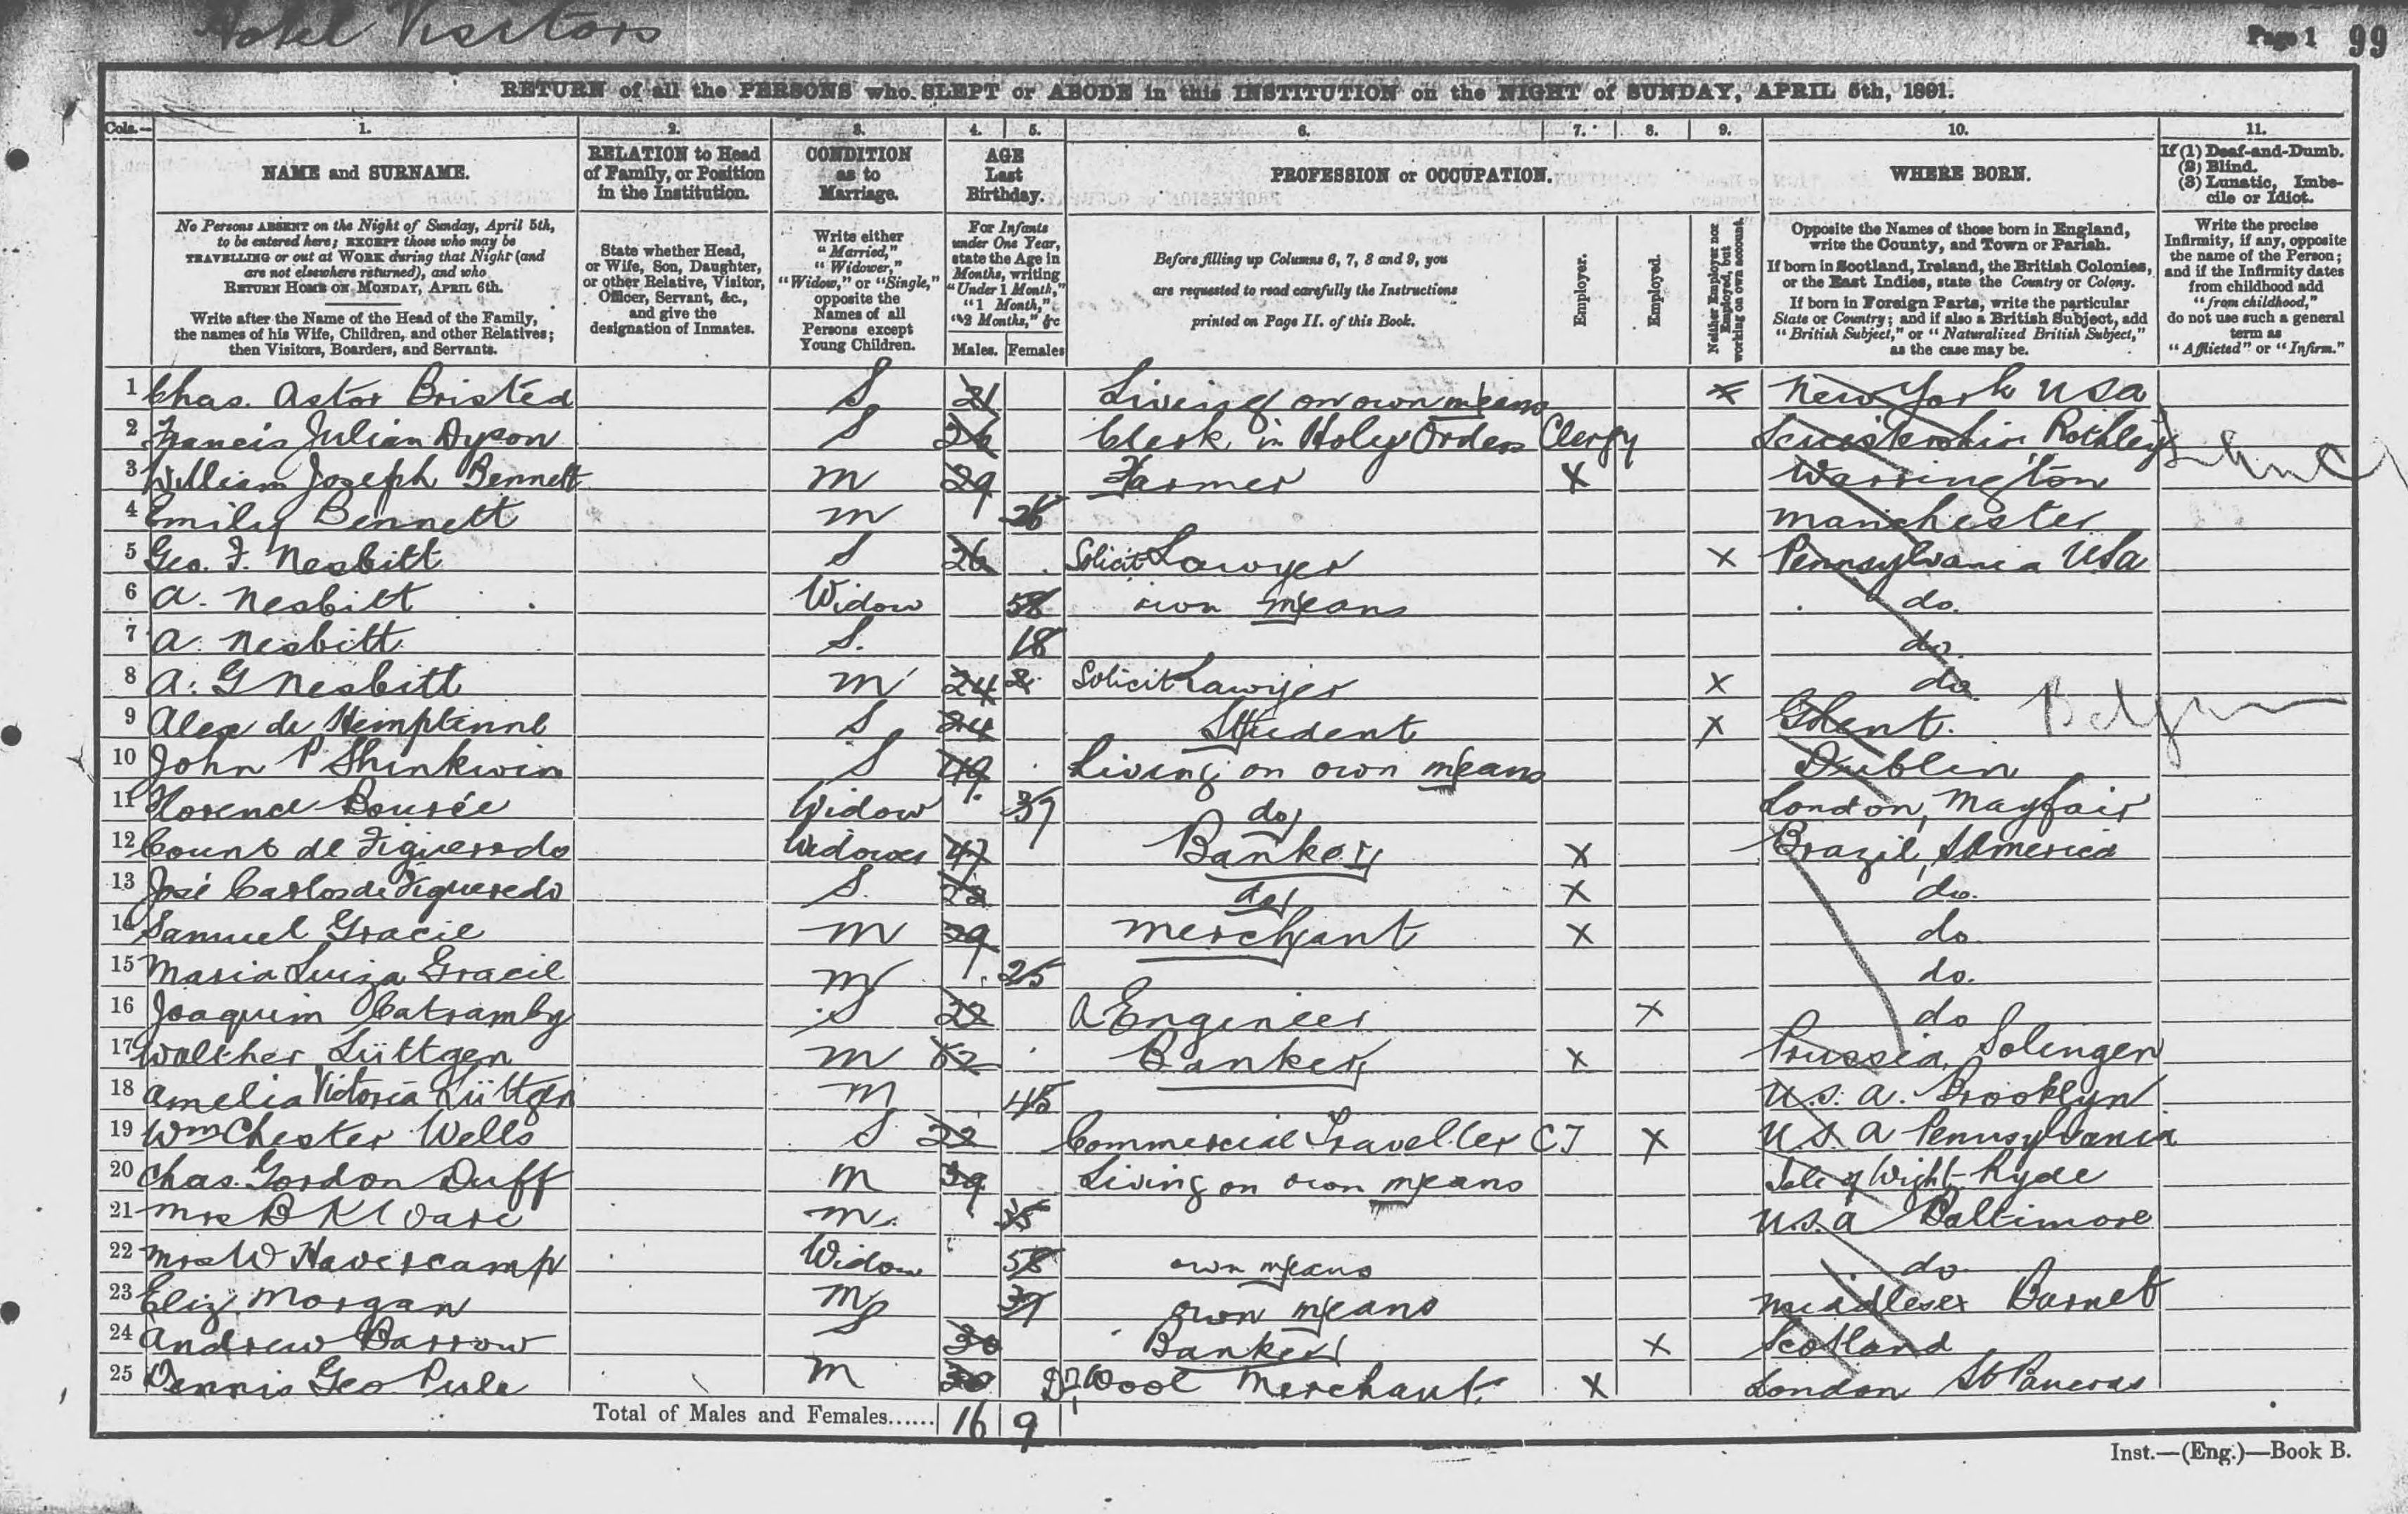 Hotel Visitors
Page 1 99
RETURN of all the PERSONS who SLEPT or ABODE in this INSTITUTION on the NIGHT of SUNDAY, APRIL 5th, 1891.
Cols.— 1. 2. 3. 4. 5. 6. 7. 8. 9. 10. 11.
NAME and SURNAME.
No Persons ABSENT on the Night of Sunday, April 5th,
to be entered here; EXCEPT those who may be
TRAVELLING or out at WORK during that Night (and
are not elsewhere returned), and who
RETURN HOME ON MONDAY, APRIL 6th.
Write after the Name of the Head of the Family,
the names of his Wife, Children, and other Relatives;
then Visitors, Boarders, and Servants.
RELATION to Head
of Family, or Position
in the Institution.
State whether Head,
or Wife, Son, Daughter,
or other Relative, Visitor,
Officer, Servant, &c.,
and give the
designation of Inmates.
CONDITION
as to
Marriage.
Write either
"Married,"
"Widower,"
"Widow," or "Single,"
opposite the
Names of all
Persons except
Young Children.
AGE
Last
Birthday.
For Infants
under One Year,
state the Age in
Months, writing
"Under 1 Month,"
"1 Month,"
"2 Months," &c
Males. Females
PROFESSION or OCCUPATION.
Before filling up Columns 6, 7, 8 and 9, you
are requested to read carefully the Instructions
printed on Page II. of this Book.
Employer.
Employed.
Neither Employer nor
Employed, but
working on own account.
WHERE BORN.
Opposite the Names of those born in England,
write the County, and Town or Parish.
If born in Scotland, Ireland, the British Colonies,
or the East Indies, state the Country or Colony.
If born in Foreign Parts, write the particular
State or Country; and if also a British Subject, add
"British Subject," or "Naturalized British Subject,"
as the case may be.
If (1) Deaf-and-Dumb.
(2) Blind.
(3) Lunatic, Imbe-
cile or Idiot.
Write the precise
Infirmity, if any, opposite
the name of the Person;
and if the Infirmity dates
from childhood add
"from childhood,"
do not use such a general
term as
"Afflicted" or "Infirm."
1 Chas. Astor Bristed S 21 Living on own means X New York USA
2 Francis Julian Dyson S 26 Clerk in Holy Orders Clergy Leicestershire Rothley
3 William Joseph Bennett M 29 Farmer X Warrington
4 Emily Bennett M 26 Manchester
5 Geo. F. Nesbitt S 26 Solicit Lawyer X Pennsylvania USA
6 A. Nesbitt Widow 58 own means do.
7 A. Nesbitt S. 18 do.
8 A. G Nesbitt M 24 Solicit Lawyer X do.
9 Alex de Hemptinne S 24 Student X Ghent. Belgium
10 John P Shinkwin S 49 Living on own means Dublin
11 Florence Bourée Widow 37 do London, Mayfair
12 Count de Figueredo Widower 47 Banker X Brazil, S America
13 José Carlos de Figueredo S. 22 do X do.
14 Samuel Gracie M 29 Merchant X do
15 Maria Luiza Gracie M 25 do.
16 Joaquim Catramby S 22 A Engineer X do
17 Walther Lüttgen M 52 Banker X Prussia, Solingen
18 Amelia Victoria Lüttgen M 45 U.S.A. Brooklyn
19 Wm Chester Wells S 22 Commercial Traveller CT X U.S.A Pennsylvania
20 Chas. Gordon Duff M 39 Living on own means Isle of Wight Ryde
21 Mrs B M. 35 U.S.A Baltimore
22 Mrs W Havercamp Widow 58 own means do
23 Eliz. Morgan M 37 own means Middlesex Barnet
24 Andrew Barrow S 30 Banker X Scotland
25 Dennis Geo. Pule M 30 Wool Merchant X London St Pancras
Total of Males and Females...... 16 9
Inst.—(Eng.)—Book B.